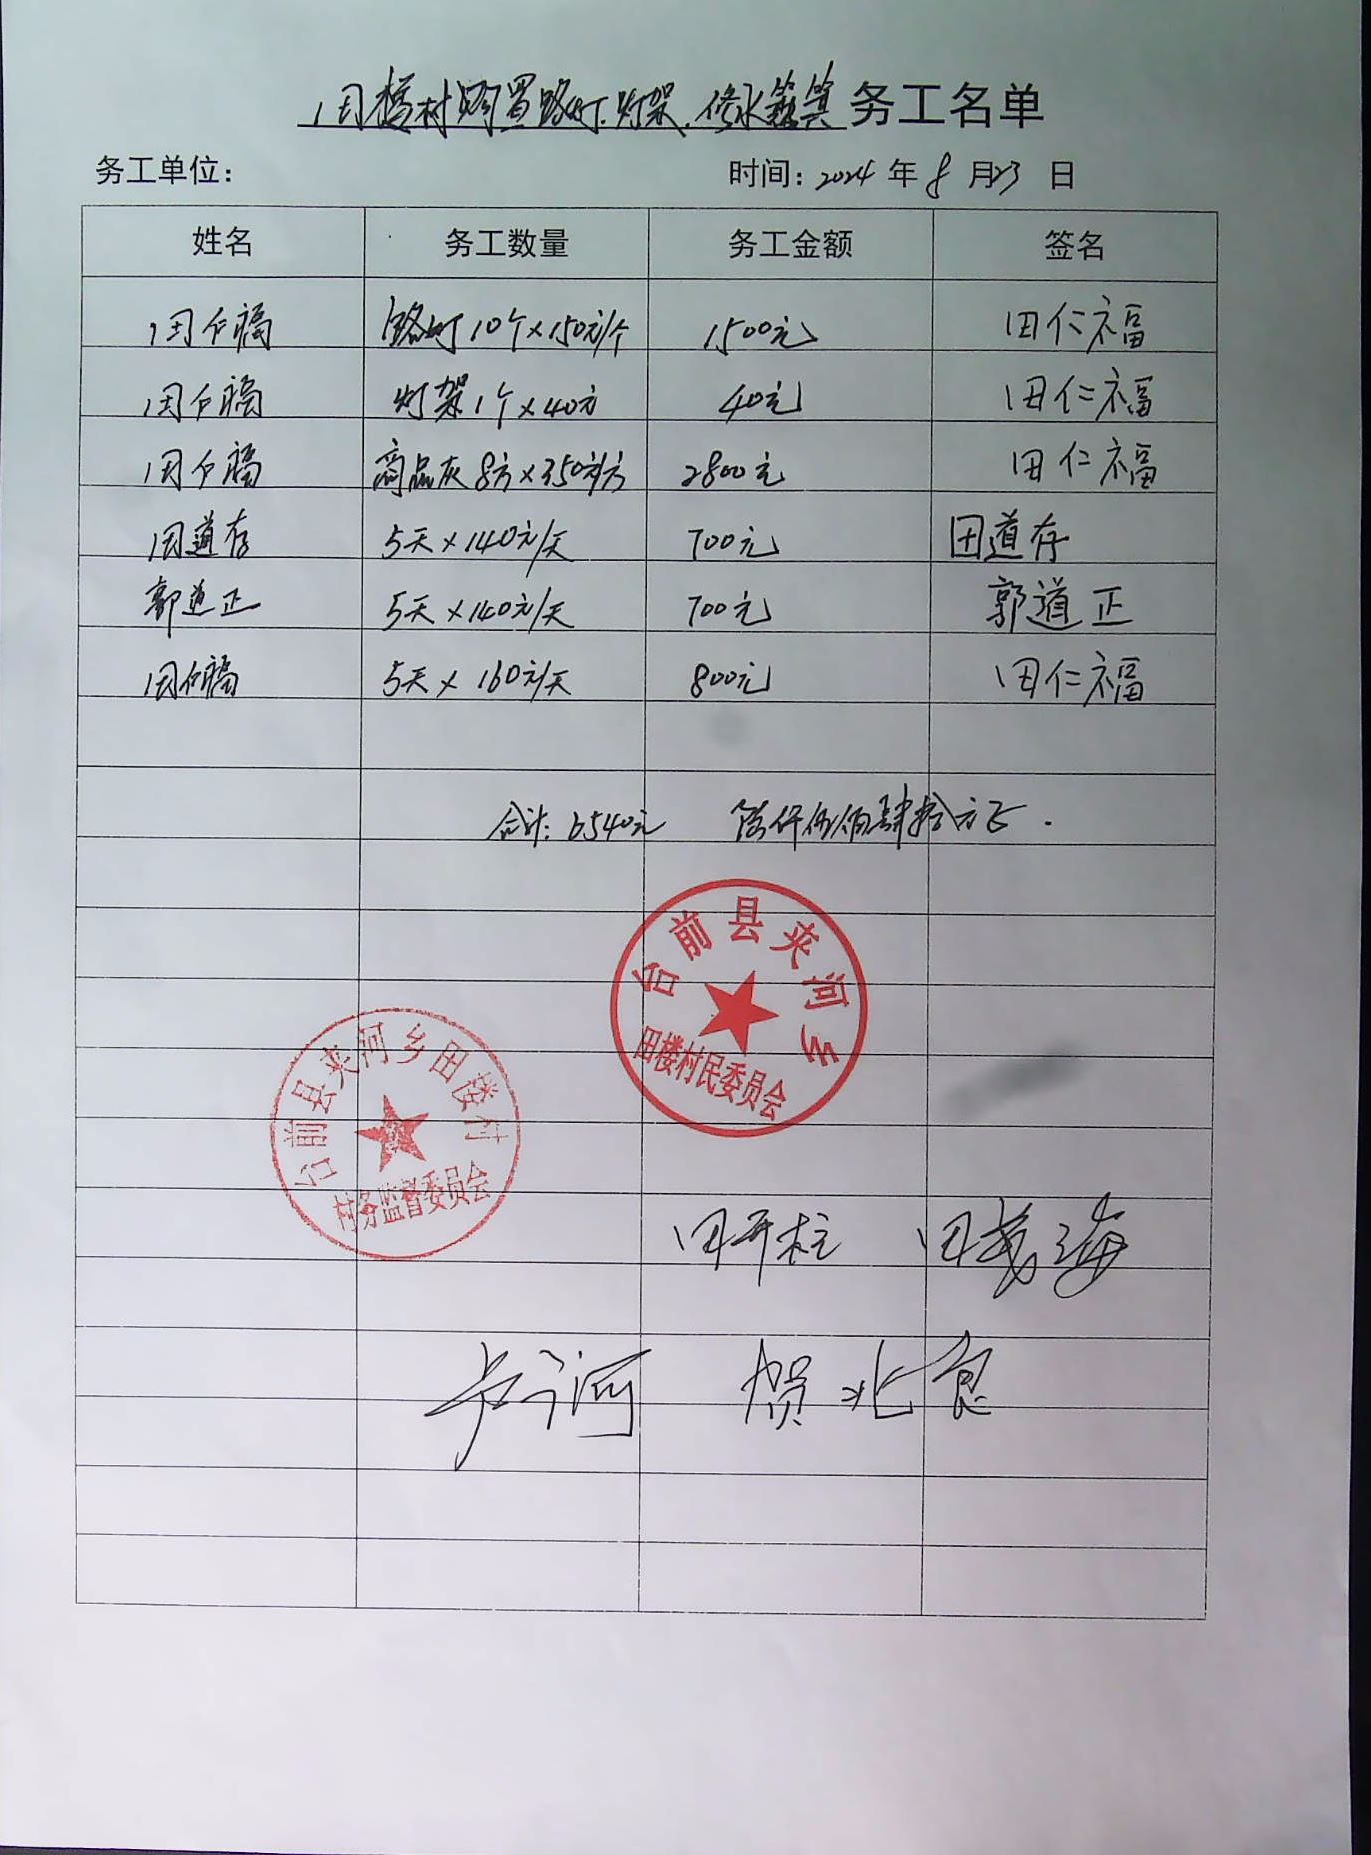 田楼村购置路灯、灯架、修水簸箕务工名单
务工单位： 时间：2024年8月23日
姓名 务工数量 务工金额 签名
田仁福 路灯10个×150元/个 1500元 田仁福
田仁福 灯架1个×40元 40元 田仁福
田仁福 商品灰8方×350元/方 2800元 田仁福
田道存 5天×140元/天 700元 田道存
郭道正 5天×140元/天 700元 郭道正
田仁福 5天×160元/天 800元 田仁福
合计：6540元 陆仟伍佰肆拾元正.
台前县夹河乡
田楼村民委员会
台前县夹河乡田楼村
村务监督委员会
田开柱 田茂海
河 贺兆良